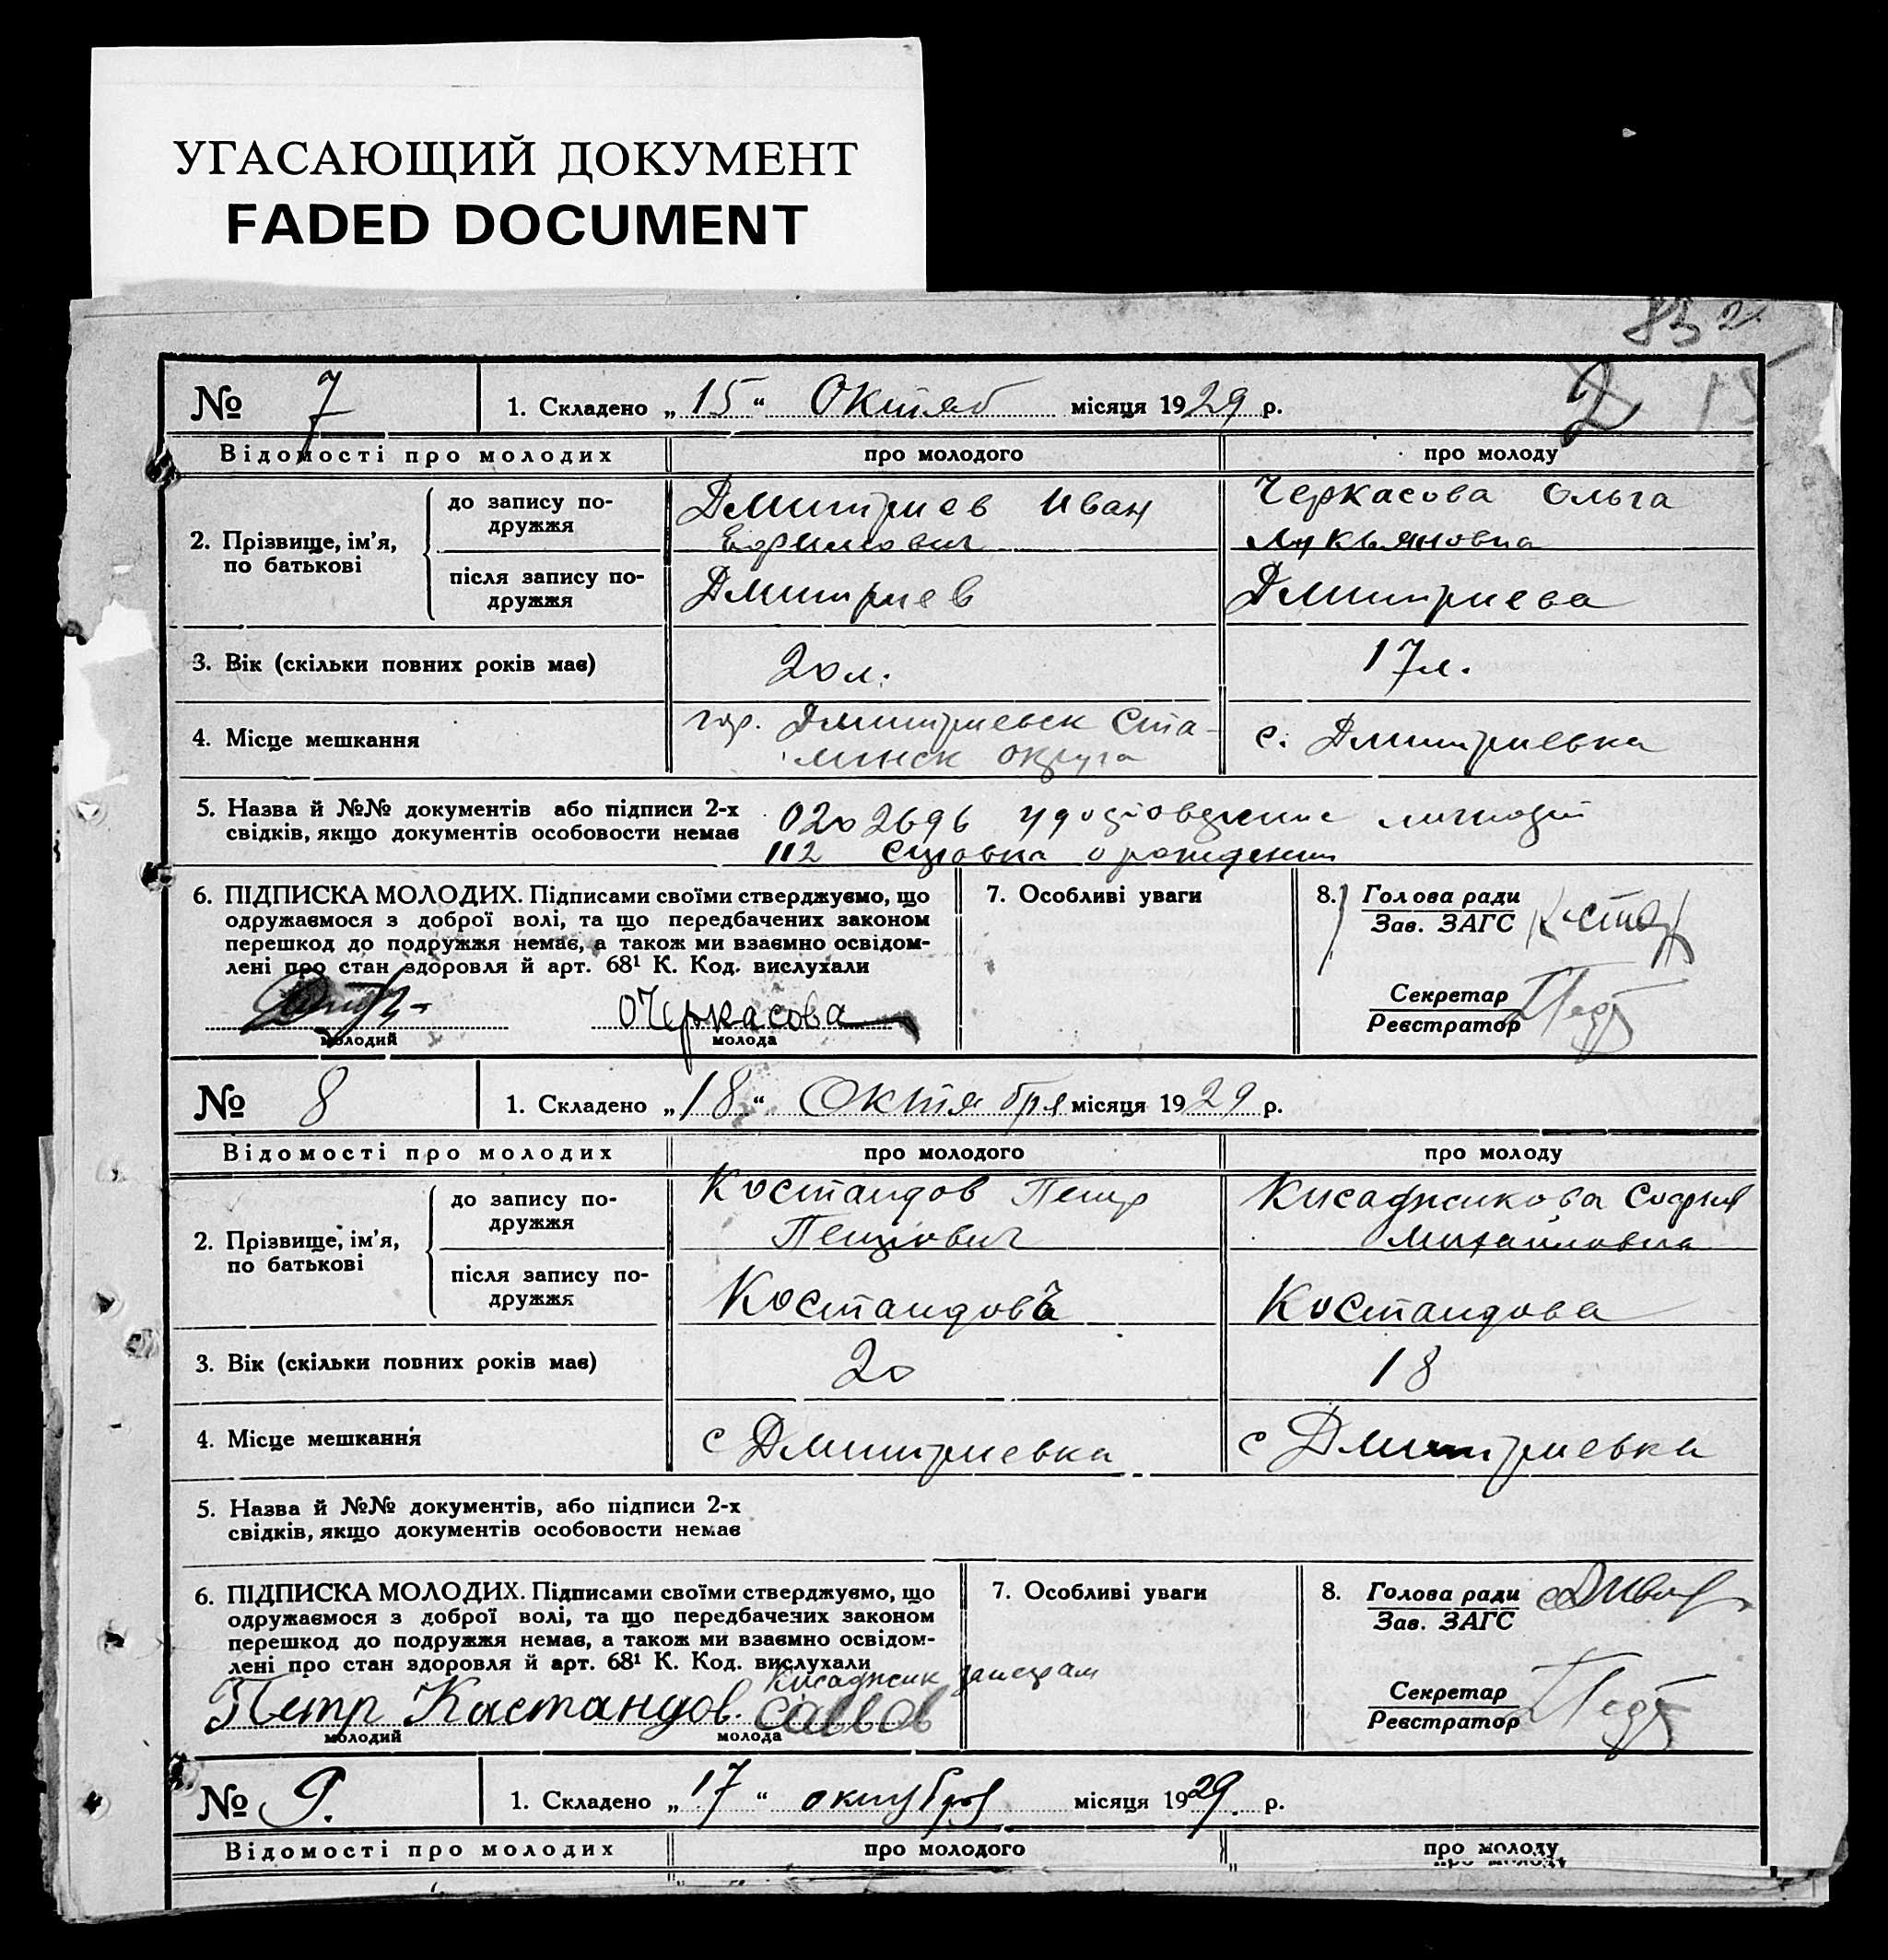 УГАСАЮЩИЙ ДОКУМЕНТ
FADED DOCUMENT
83 2
№ 7 1. Складено „15“ Октяб місяця 1929 р. 2 15
Відомості про молодих про молодого про молоду
2. Прізвище, ім'я, по батькові
до запису подружжя
Дмитриев Иван
Ефимович
Черкасова Ольга
Лукьяновна
після запису подружжя
Дмитриев
Дмитриева
3. Вік (скільки повних років має) 20 л. 17 л.
4. Місце мешкання
гор. Дмитриевск Ста-
линск округа
с. Дмитриевка
5. Назва й №№ документів або підписи 2-х
свідків, якщо документів особовости немає
0202696 удостоверение личности
112 справка о рождении
6. ПІДПИСКА МОЛОДИХ. Підписами своїми стверджуємо, що
одружаємося з доброї волі, та що передбачених законом
перешкод до подружжя немає, а також ми взаємно освідом-
лені про стан здоровля й арт. 68¹ К. Код. вислухали
ОЧеркасова
молодий молода
7. Особливі уваги
8. Голова ради
Зав. ЗАГС
Секретар
Реєстратор
№ 8 1. Складено „18“ Октября місяця 1929 р.
Відомості про молодих про молодого про молоду
2. Прізвище, ім'я,
по батькові
до запису по-
дружжя
Костандов Петр
Петрович
Кисаджикова София
Михайловна
після запису по-
дружжя
Костандовъ
Костандова
3. Вік (скільки повних років має) 20 18
4. Місце мешкання с Дмитриевка с Дмитриевка
5. Назва й №№ документів, або підписи 2-х
свідків, якщо документів особовости немає
6. ПІДПИСКА МОЛОДИХ. Підписами своїми стверджуємо, що
одружаємося з доброї волі, та що передбачених законом
перешкод до подружжя немає, а також ми взаємно освідом-
лені про стан здоровля й арт. 68¹ К. Код. вислухали
Петр Кастандов.
молодий молода
7. Особливі уваги
8. Голова ради
Зав. ЗАГС
Секретар
Реєстратор
№ 9. 1. Складено „17“ октября місяця 1929. р.
Відомості про молодих про молодого про молоду